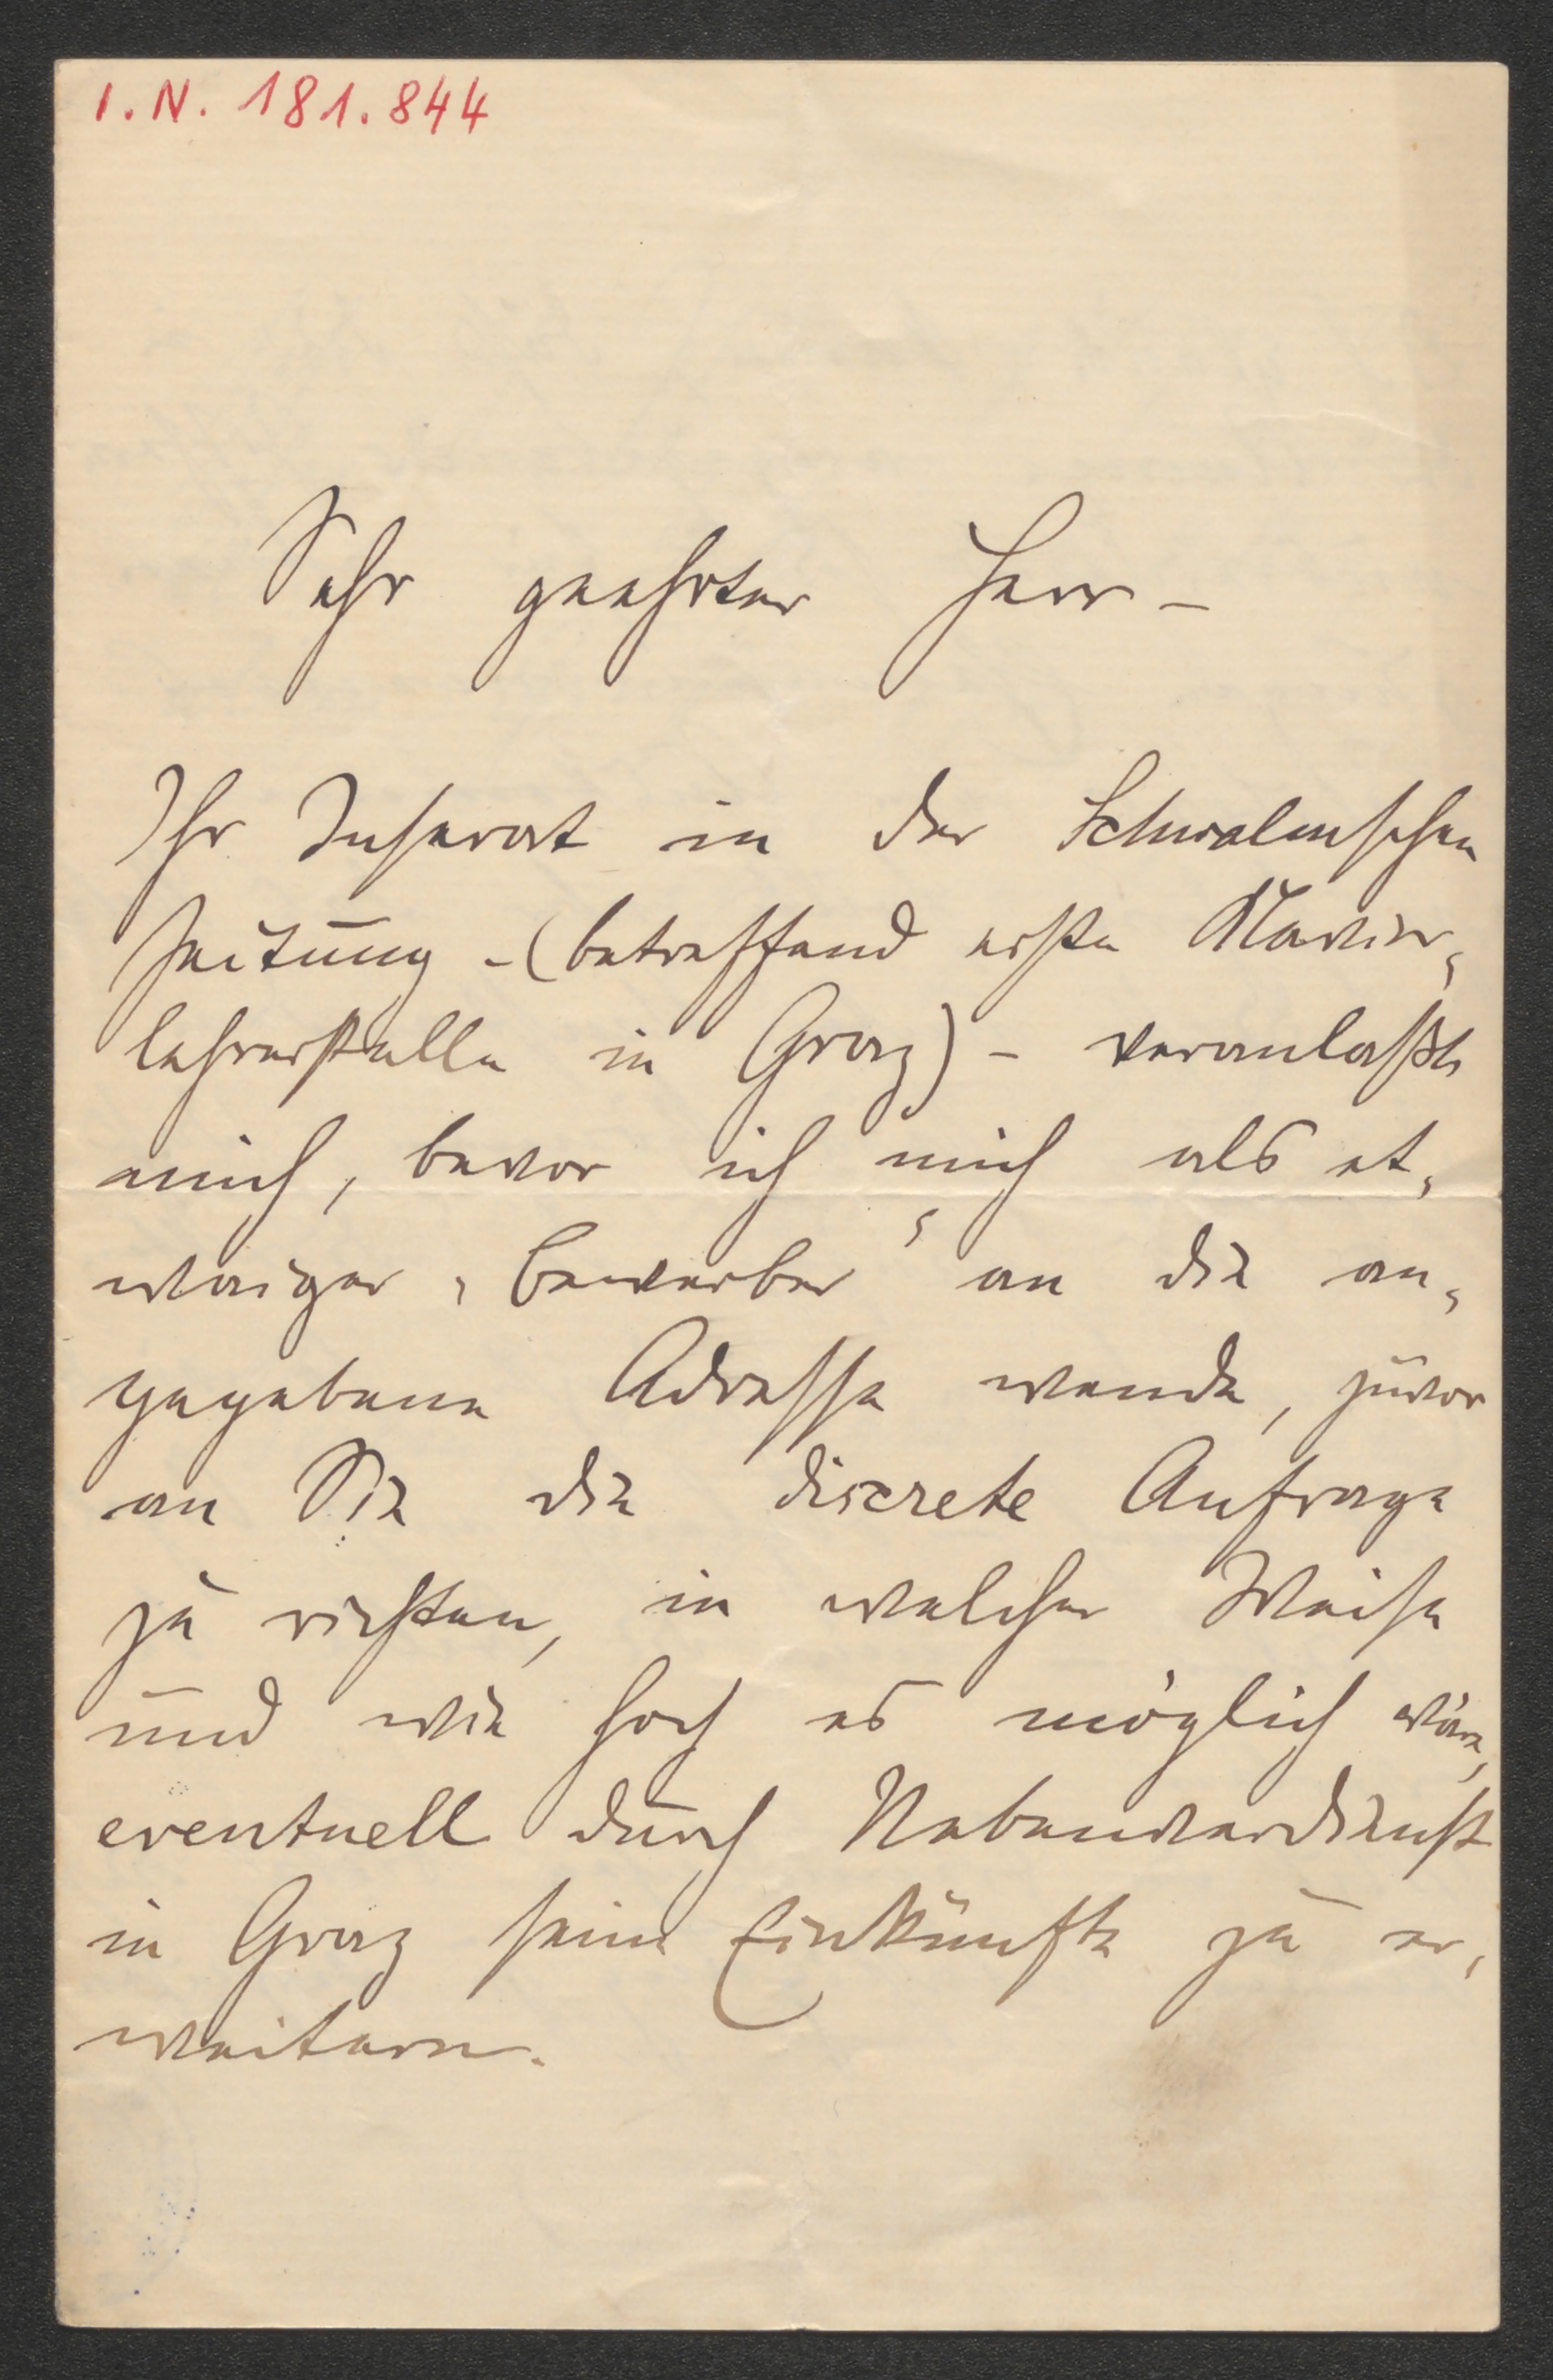 I.N. 181.844
Sehr geehrter Herr –
Ihr Inserat in der Schwalmschen
Zeitung – (betreffend erste Klavier-
lehrerstelle in Graz) – veranlaßt
mich, bevor ich mich als et-
waiger „Bewerber“ an die an-
gegebene Adresse wende, zuvor
an Sie die discrete Anfrage
zu richten, in welcher Weise
und wie hoch es möglich wäre,
eventuell durch Nebenverdienst
in Graz seine Einkünfte zu er-
weitern.